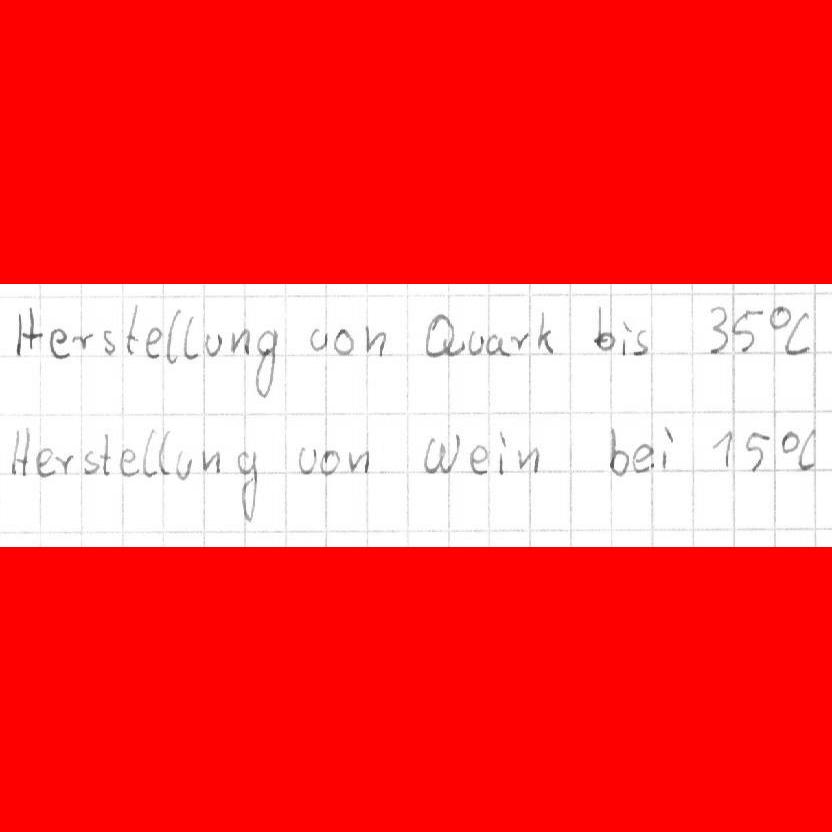 Herstellung von Quark bis 35°C
Herstellung von Wein bei 15°C